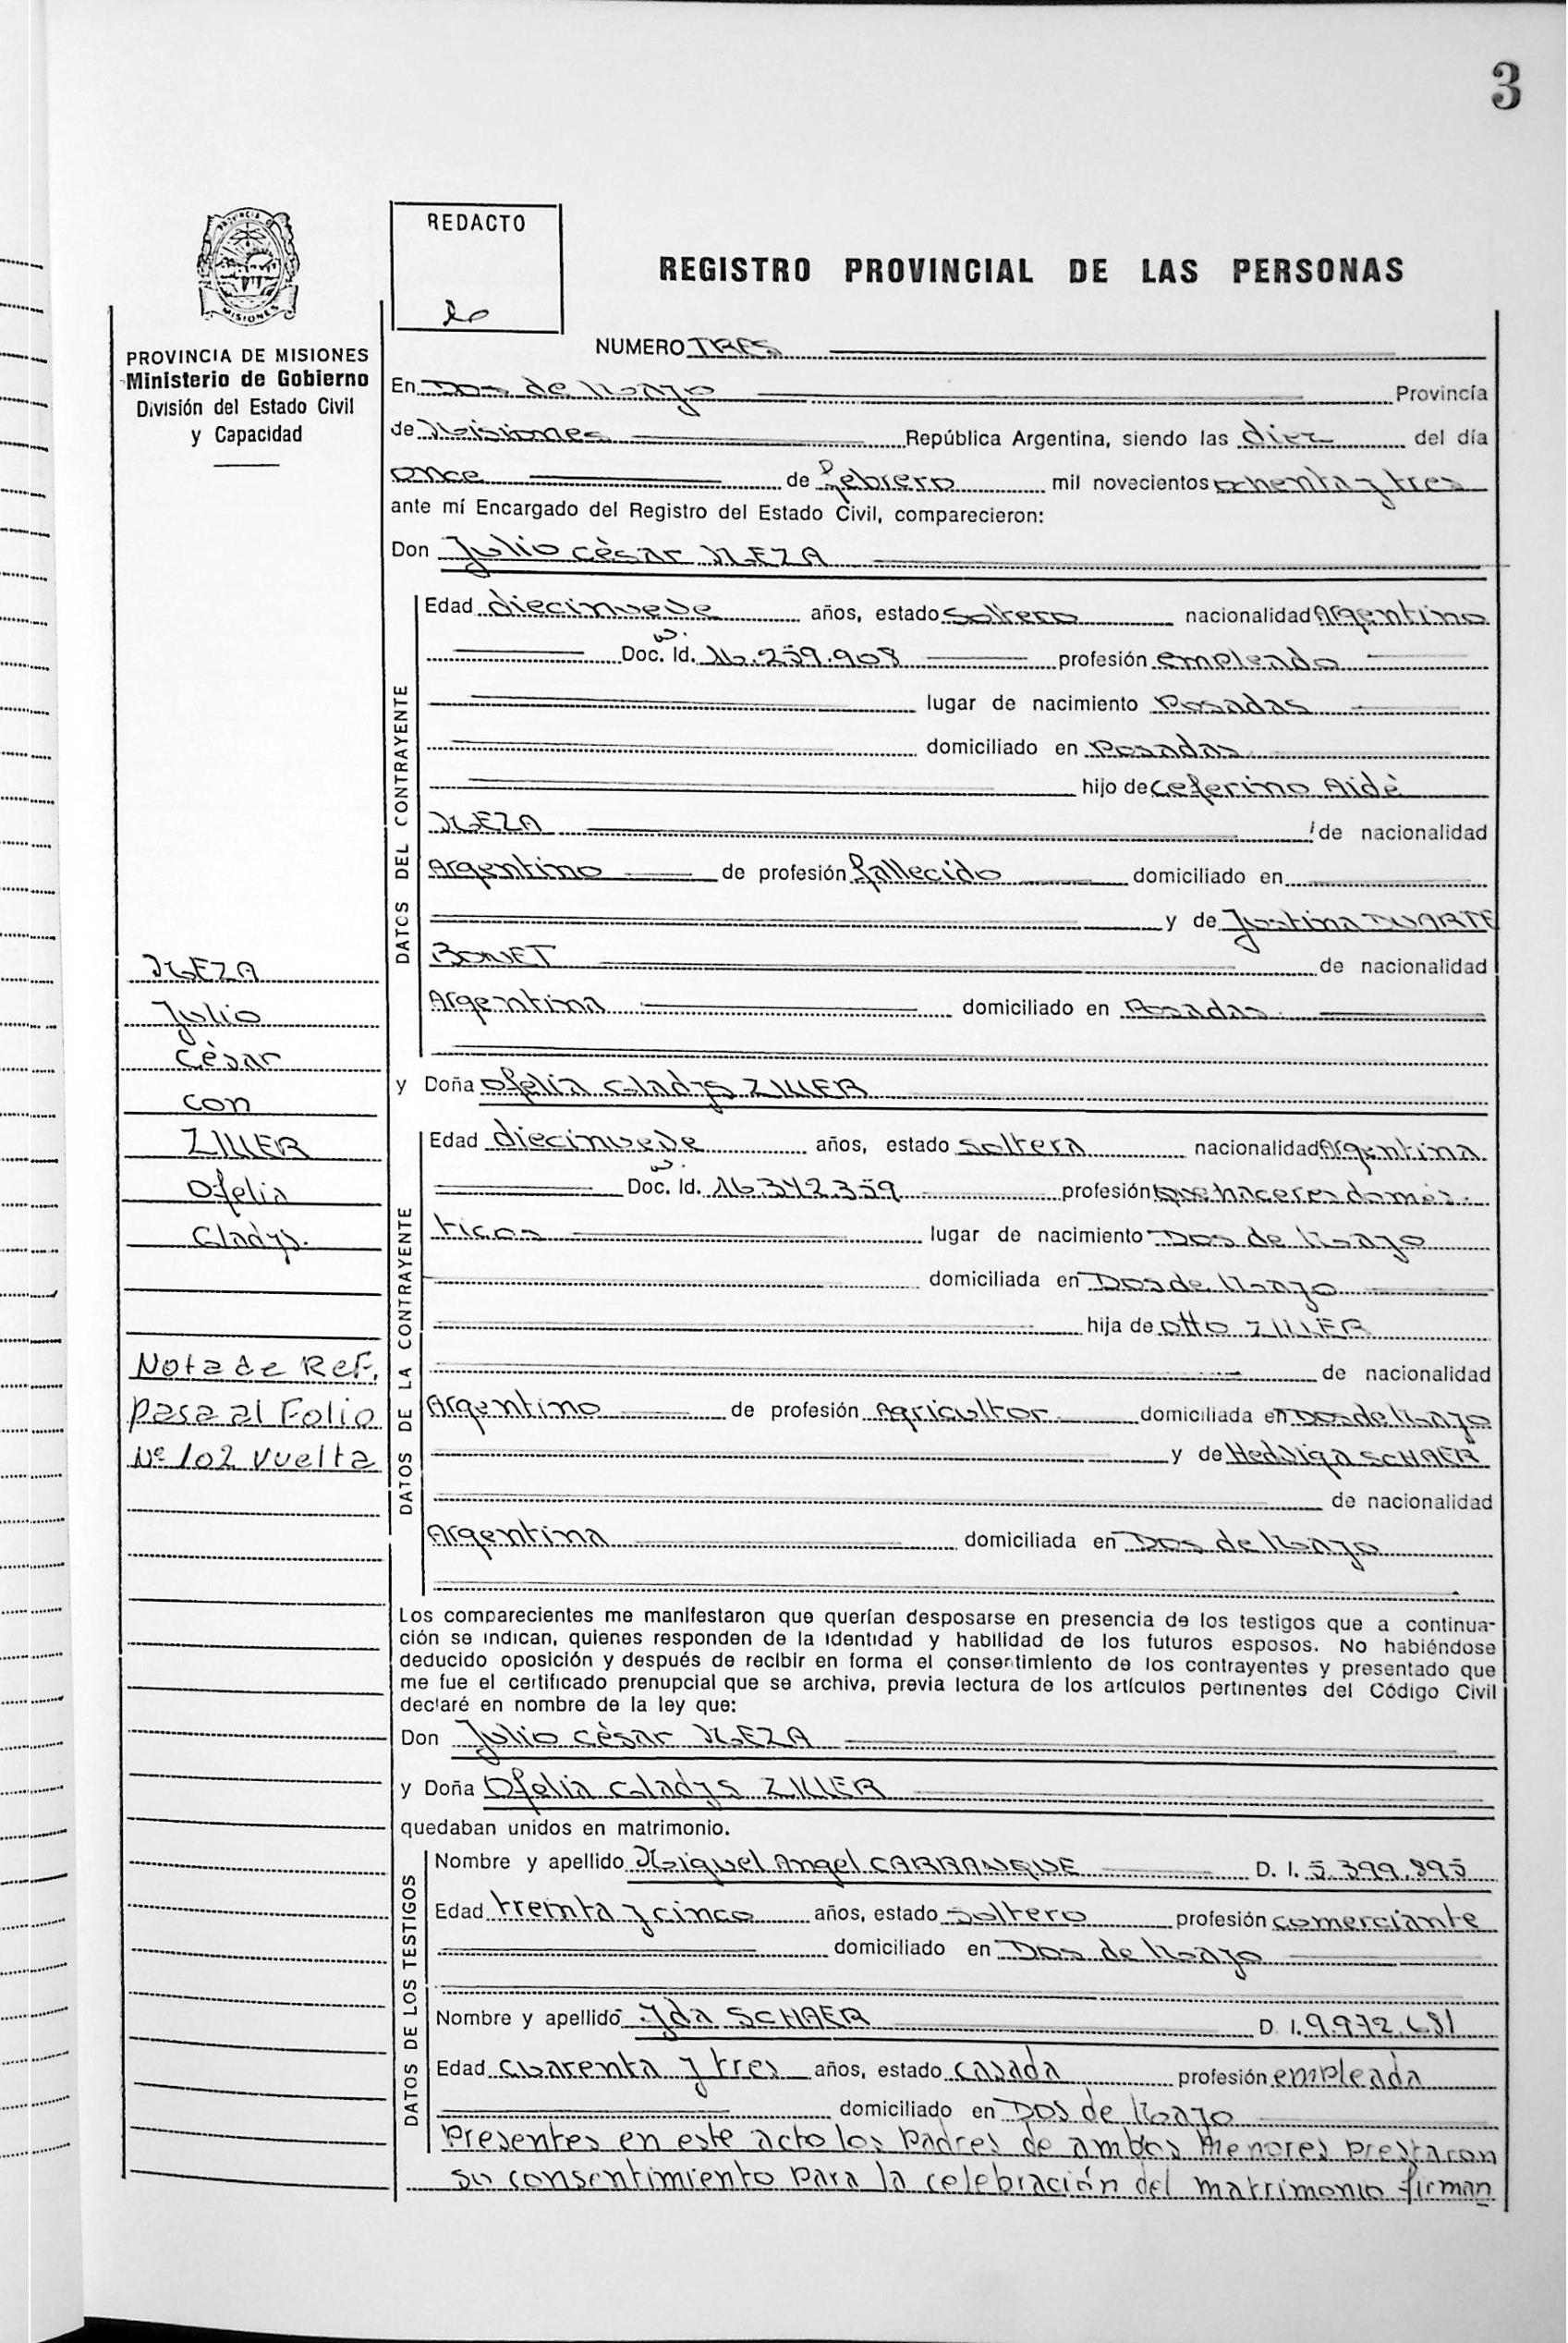 3
REDACTO
REGISTRO PROVINCIAL DE LAS PERSONAS
MISIONES
PROVINCIA DE MISIONES
Ministerio de Gobierno
División del Estado Civil
y Capacidad
NUMERO TRES
En Dos de Mayo Provincia
de Misiones República Argentina, siendo las diez del día
once de febrero mil novecientos ochenta y tres
ante mí Encargado del Registro del Estado Civil, comparecieron:
Don Julio Cèsar MEZA
DATOS DEL CONTRAYENTE
Edad diecinueve años, estado soltero nacionalidad Argentino
Doc. Id. 16.259.908 profesión empleado
lugar de nacimiento Posadas
domiciliado en Posadas
hijo de Ceferino Aidè
MEZA de nacionalidad
Argentino de profesión fallecido domiciliado en
y de Justina DUARTE
BONET de nacionalidad
Argentina domiciliado en Posadas.
MEZA
Julio
Cèsar
con
ZILLER
Ofelia
Gladys.
Nota de Ref.
pasa al Folio
Nº 102 vuelta
y Doña Ofelia Gladys ZILLER
DATOS DE LA CONTRAYENTE
Edad diecinueve años, estado soltera nacionalidad Argentina
Doc. Id. 16.342.359 profesión quehaceres domés-
ticos lugar de nacimiento Dos de Mayo
domiciliada en Dos de Mayo
hija de Otto ZILLER
de nacionalidad
Argentino de profesión Agricultor domiciliada en Dos de Mayo
y de Hedviga SCHAER
de nacionalidad
Argentina domiciliada en Dos de Mayo
Los comparecientes me manifestaron que querían desposarse en presencia de los testigos que a continua-
ción se indican, quienes responden de la identidad y habilidad de los futuros esposos. No habiéndose
deducido oposición y después de recibir en forma el consentimiento de los contrayentes y presentado que
me fue el certificado prenupcial que se archiva, previa lectura de los artículos pertinentes del Código Civil
declaré en nombre de la ley que:
Don Julio Cèsar MEZA
y Doña Ofelia Gladys ZILLER
quedaban unidos en matrimonio.
DATOS DE LOS TESTIGOS
Nombre y apellido Miguel Angel CARRANQUE D. I. 5.399.895
Edad treinta y cinco años, estado soltero profesión comerciante
domiciliado en Dos de Mayo
Nombre y apellido Yda SCHAER D. I. 9.972.681
Edad cuarenta y tres años, estado casada profesión empleada
domiciliado en Dos de Mayo
Presentes en este acto los padres de ambos menores prestaron
su consentimiento para la celebración del matrimonio firman